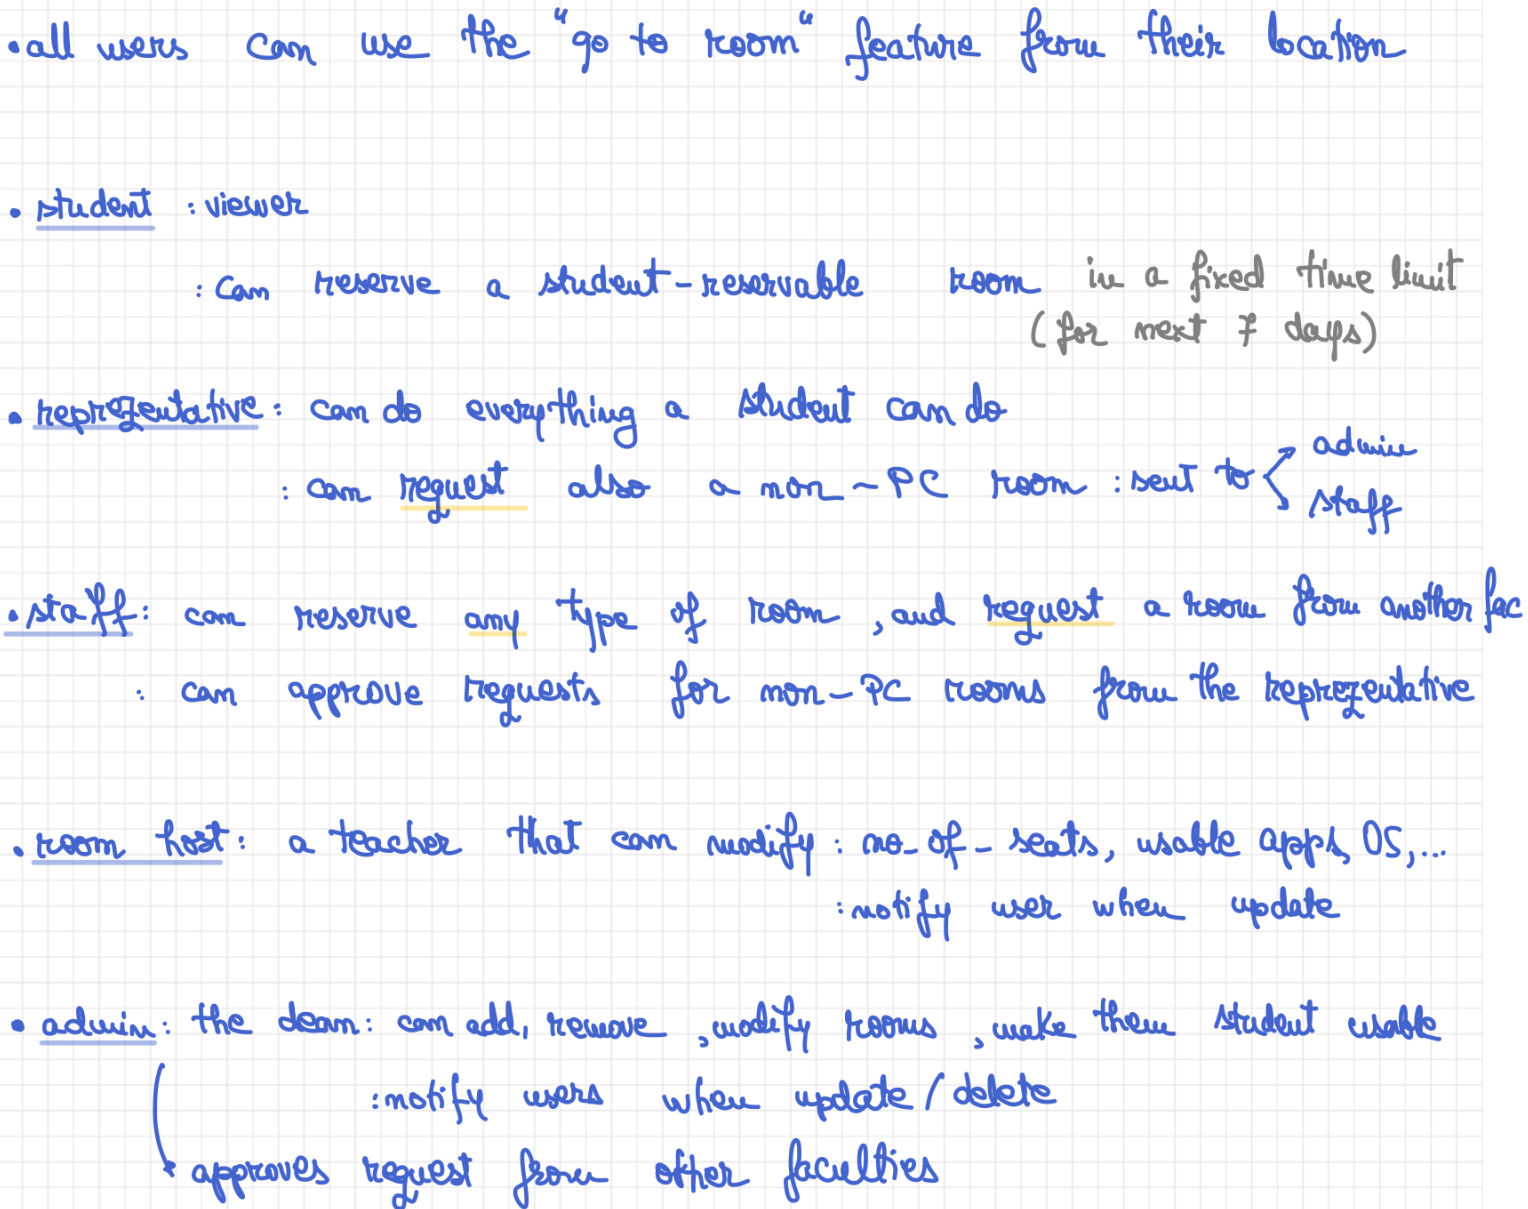 • all users can use the "go to room" feature from their location
• student : viewer
: can reserve a student-reservable room in a fixed time limit
(for next 7 days)
• reprezentative : can do everything a student can do
: can request also a non-PC room : sent to admin
staff
• staff : can reserve any type of room, and request a room from another fac
: can approve requests for non-PC rooms from the reprezentative
• room host : a teacher that can modify : no_of_seats, usable apps, OS,...
: notify user when update
• admin : the dean : can add, remove, modify rooms, make them student usable
: notify users when update/delete
approves request from other faculties